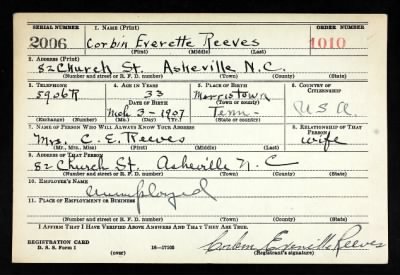 SERIAL NUMBER 1. NAME (Print) ORDER NUMBER
2006 Corbin Everette Reeves 1010
(First) (Middle) (Last)
2. ADDRESS (Print)
82 Church St. Asheville N.C.
(Number and street or R. F. D. number) (Town) (County) (State)
3. TELEPHONE 4. AGE IN YEARS 5. PLACE OF BIRTH 6. COUNTRY OF CITIZENSHIP
5906R 33 Morristown
DATE OF BIRTH (Town or county) U.S.A.
Mch 3-1907 Tenn-
(Exchange) (Number) (Mo.) (Day) (Yr.) (State or country)
7. NAME OF PERSON WHO WILL ALWAYS KNOW YOUR ADDRESS 8. RELATIONSHIP OF THAT PERSON
Mrs. C. E. Reeves wife
(Mr., Mrs., Miss) (First) (Middle) (Last)
9. ADDRESS OF THAT PERSON
82 Church St. Asheville N.C
(Number and street or R. F. D. number) (Town) (County) (State)
10. EMPLOYER'S NAME
unemployed
11. PLACE OF EMPLOYMENT OR BUSINESS
(Number and street or R. F. D. number) (Town) (County) (State)
I AFFIRM THAT I HAVE VERIFIED ABOVE ANSWERS AND THAT THEY ARE TRUE.
REGISTRATION CARD
D. S. S. Form 1 (over) 16—17105 Corbin Everette Reeves
(Registrant's signature)